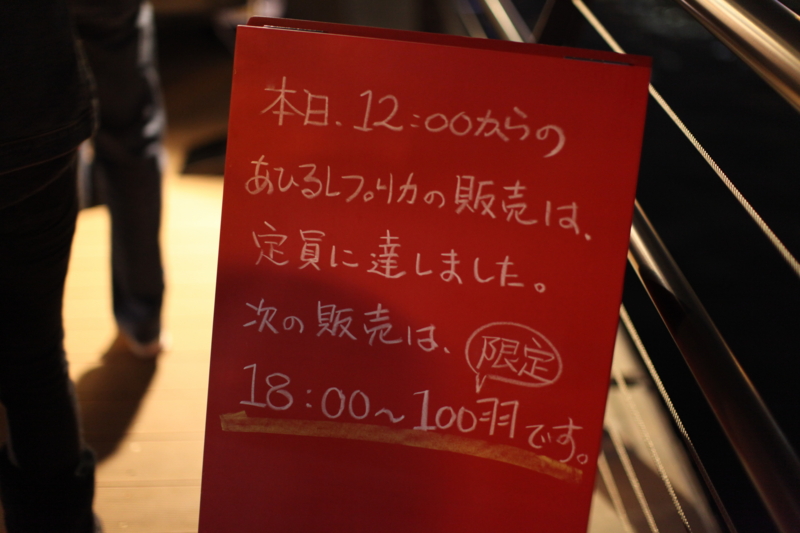 本日、12:00からの
あひるレプリカの販売は、
定員に達しました。
次の販売は、
限定
18:00～100羽です。